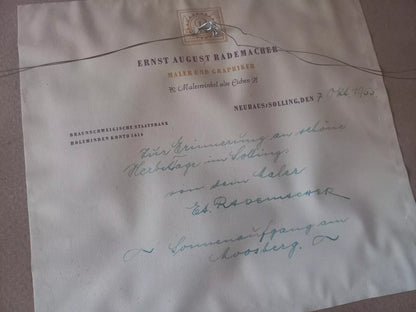 ERNST AUGUST RADEMACHER
MALER UND GRAPHIKER
Malerwinkel alte Eichen
NEUHAUS/SOLLING, DEN 7. Okt. 1955
BRAUNSCHWEIGISCHE STAATSBANK
HOLZMINDEN KONTO 1610
Zur Erinnerung an schöne
Herbsttage im Solling
von dem Maler
RADEMACHER
~ Sonnenaufgang am
Moosberg. ~